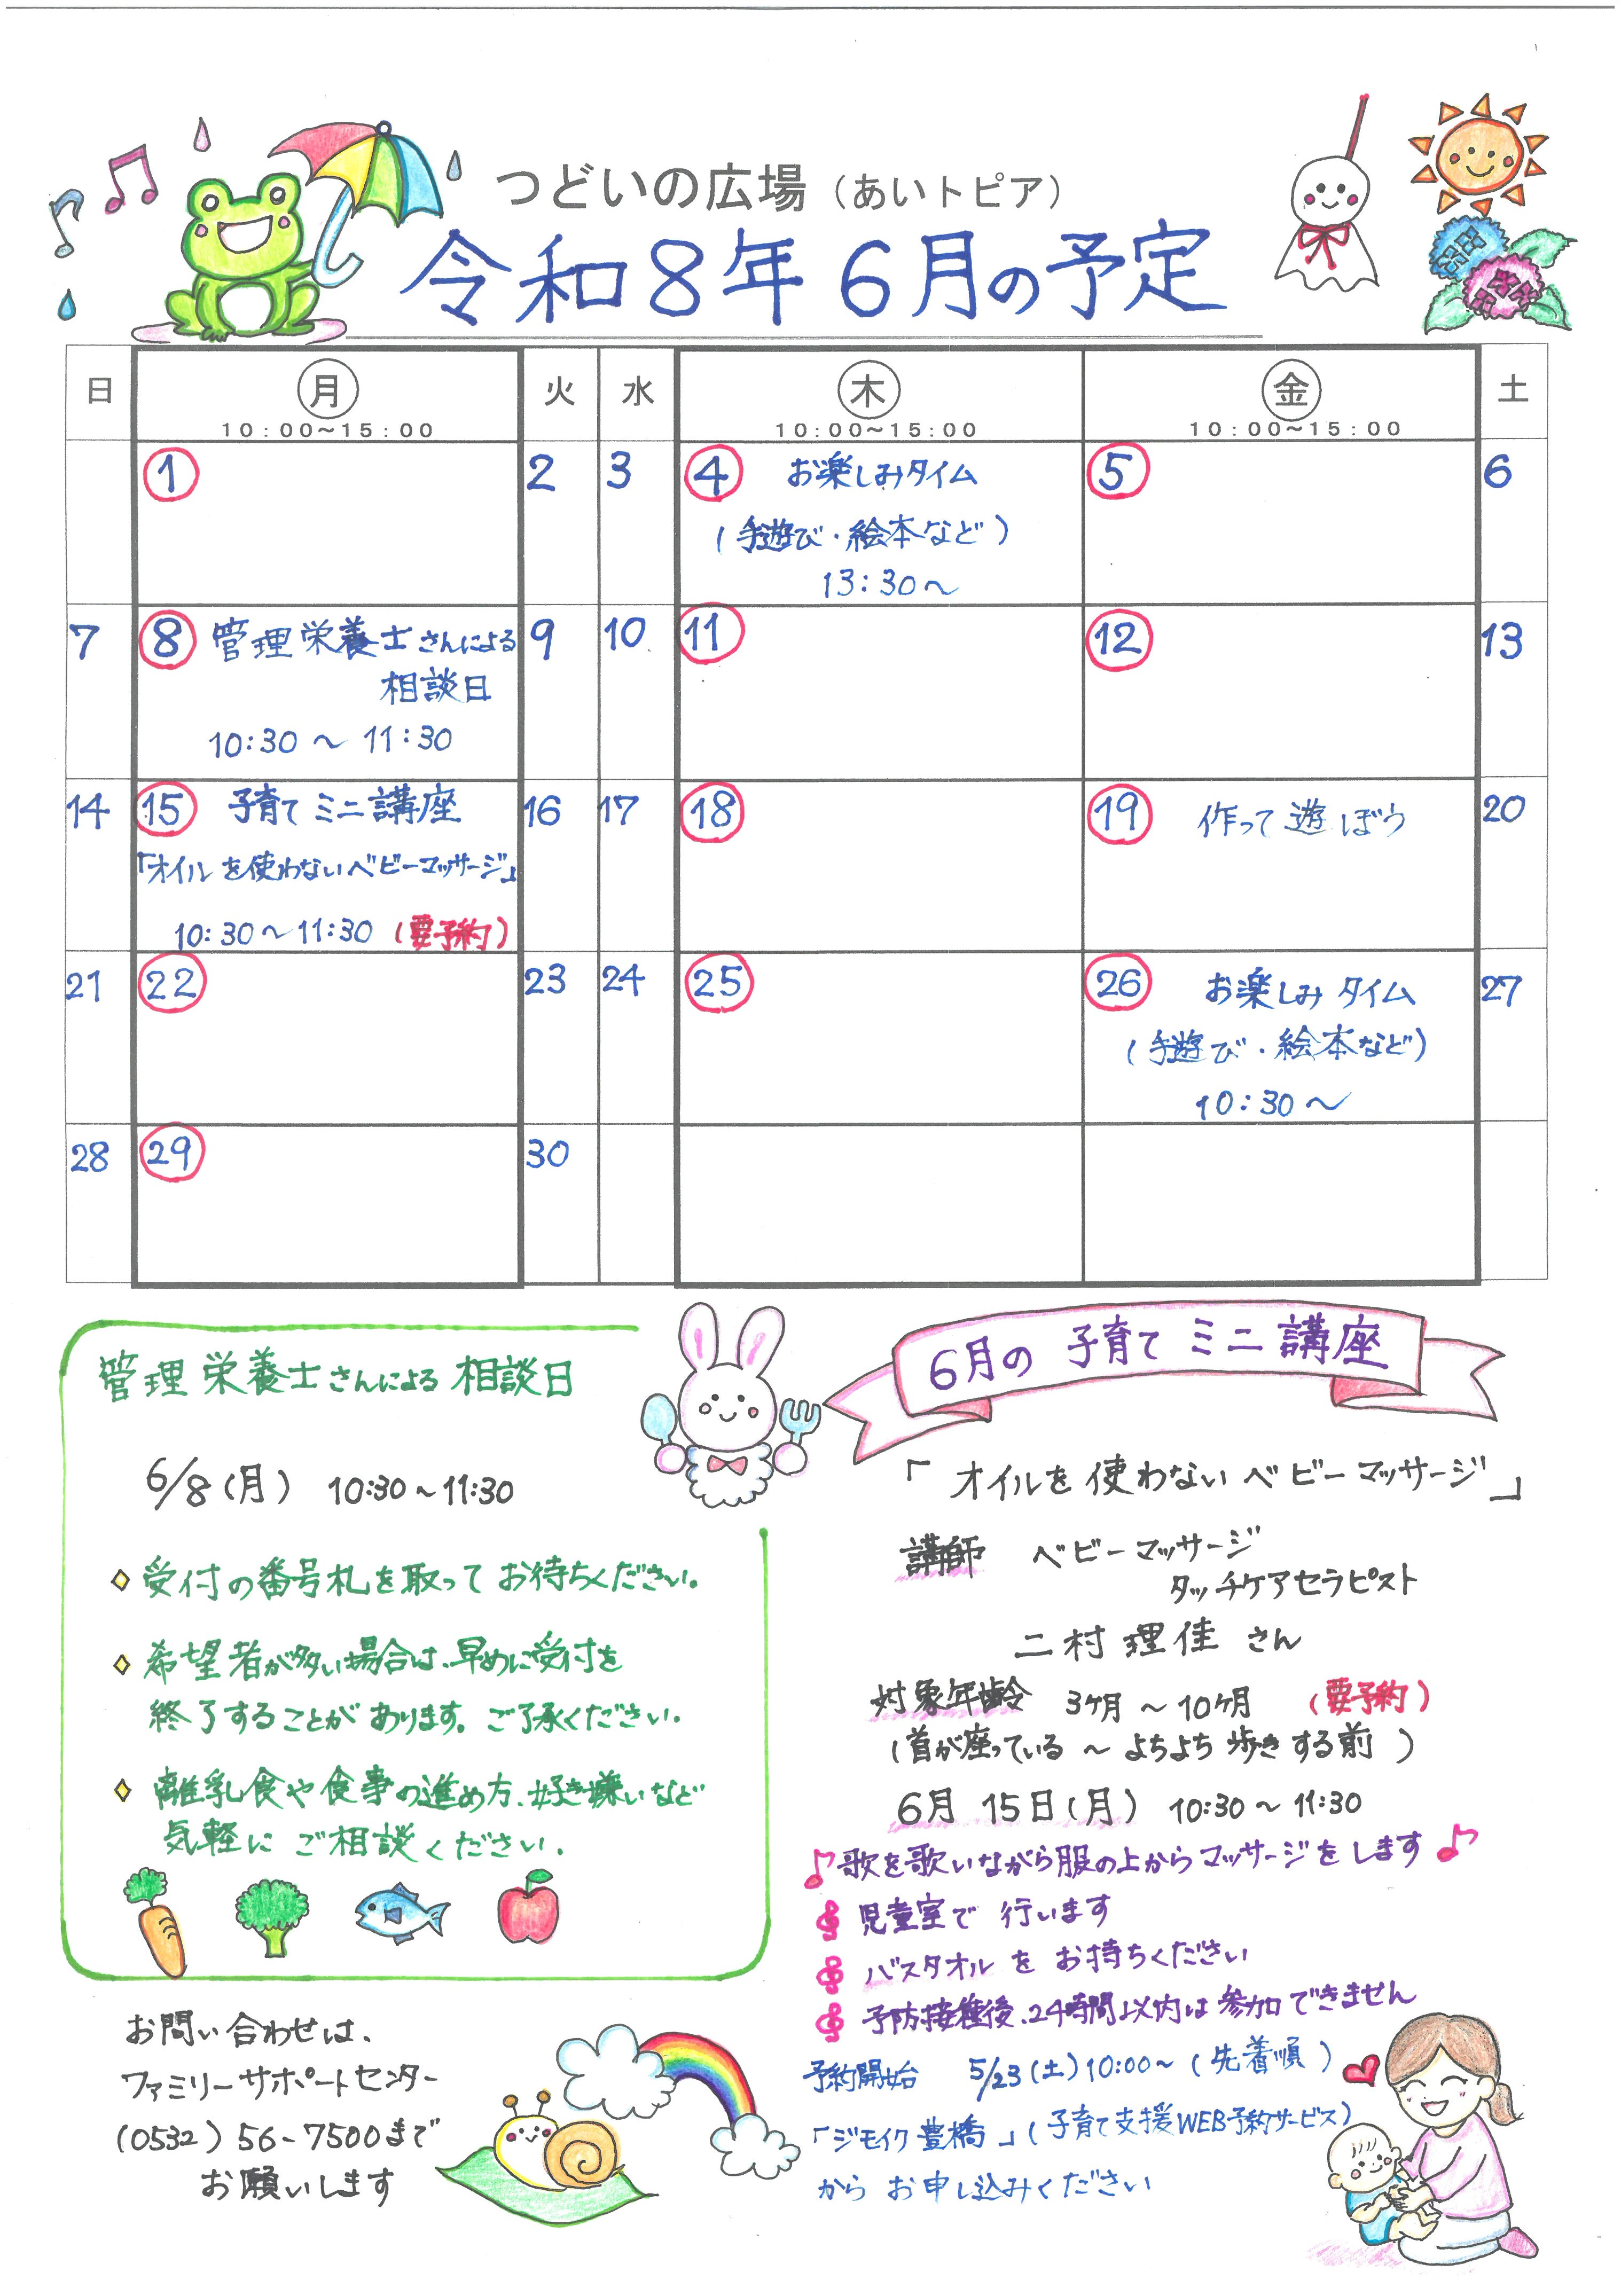 つどいの広場（あいトピア）
令和8年 6月の予定
日 月 火 水 木 金 土
10:00~15:00 10:00~15:00 10:00~15:00
1 2 3 4 お楽しみタイム 5 6
(手遊び・絵本など)
13:30～
7 8 管理栄養士さんによる 9 10 11 12 13
相談日
10:30～11:30
14 15 子育てミニ講座 16 17 18 19 作って遊ぼう 20
「オイルを使わないベビーマッサージ」
10:30～11:30 (要予約)
21 22 23 24 25 26 お楽しみタイム 27
(手遊び・絵本など)
10:30～
28 29 30
管理栄養士さんによる相談日
6/8(月) 10:30～11:30
受付の番号札を取ってお待ちください。
希望者が多い場合は、早めに受付を
終了することがあります。ご了承ください。
離乳食や食事の進め方、好き嫌いなど
気軽にご相談ください。
お問い合わせは、
ファミリーサポートセンター
(0532) 56-7500まで
お願いします
6月の子育てミニ講座
「オイルを使わないベビーマッサージ」
講師 ベビーマッサージ
タッチケアセラピスト
二村理佳さん
対象年齢 3ケ月～10ケ月 (要予約)
(首が座っている～よちよち歩きする前)
6月15日(月) 10:30～11:30
♪歌を歌いながら服の上からマッサージをします♪
児童室で行います
バスタオルをお持ちください
予防接種後、24時間以内は参加できません
予約開始 5/23(土)10:00～(先着順)
「ジモイク豊橋」(子育て支援WEB予約サービス)
からお申し込みください